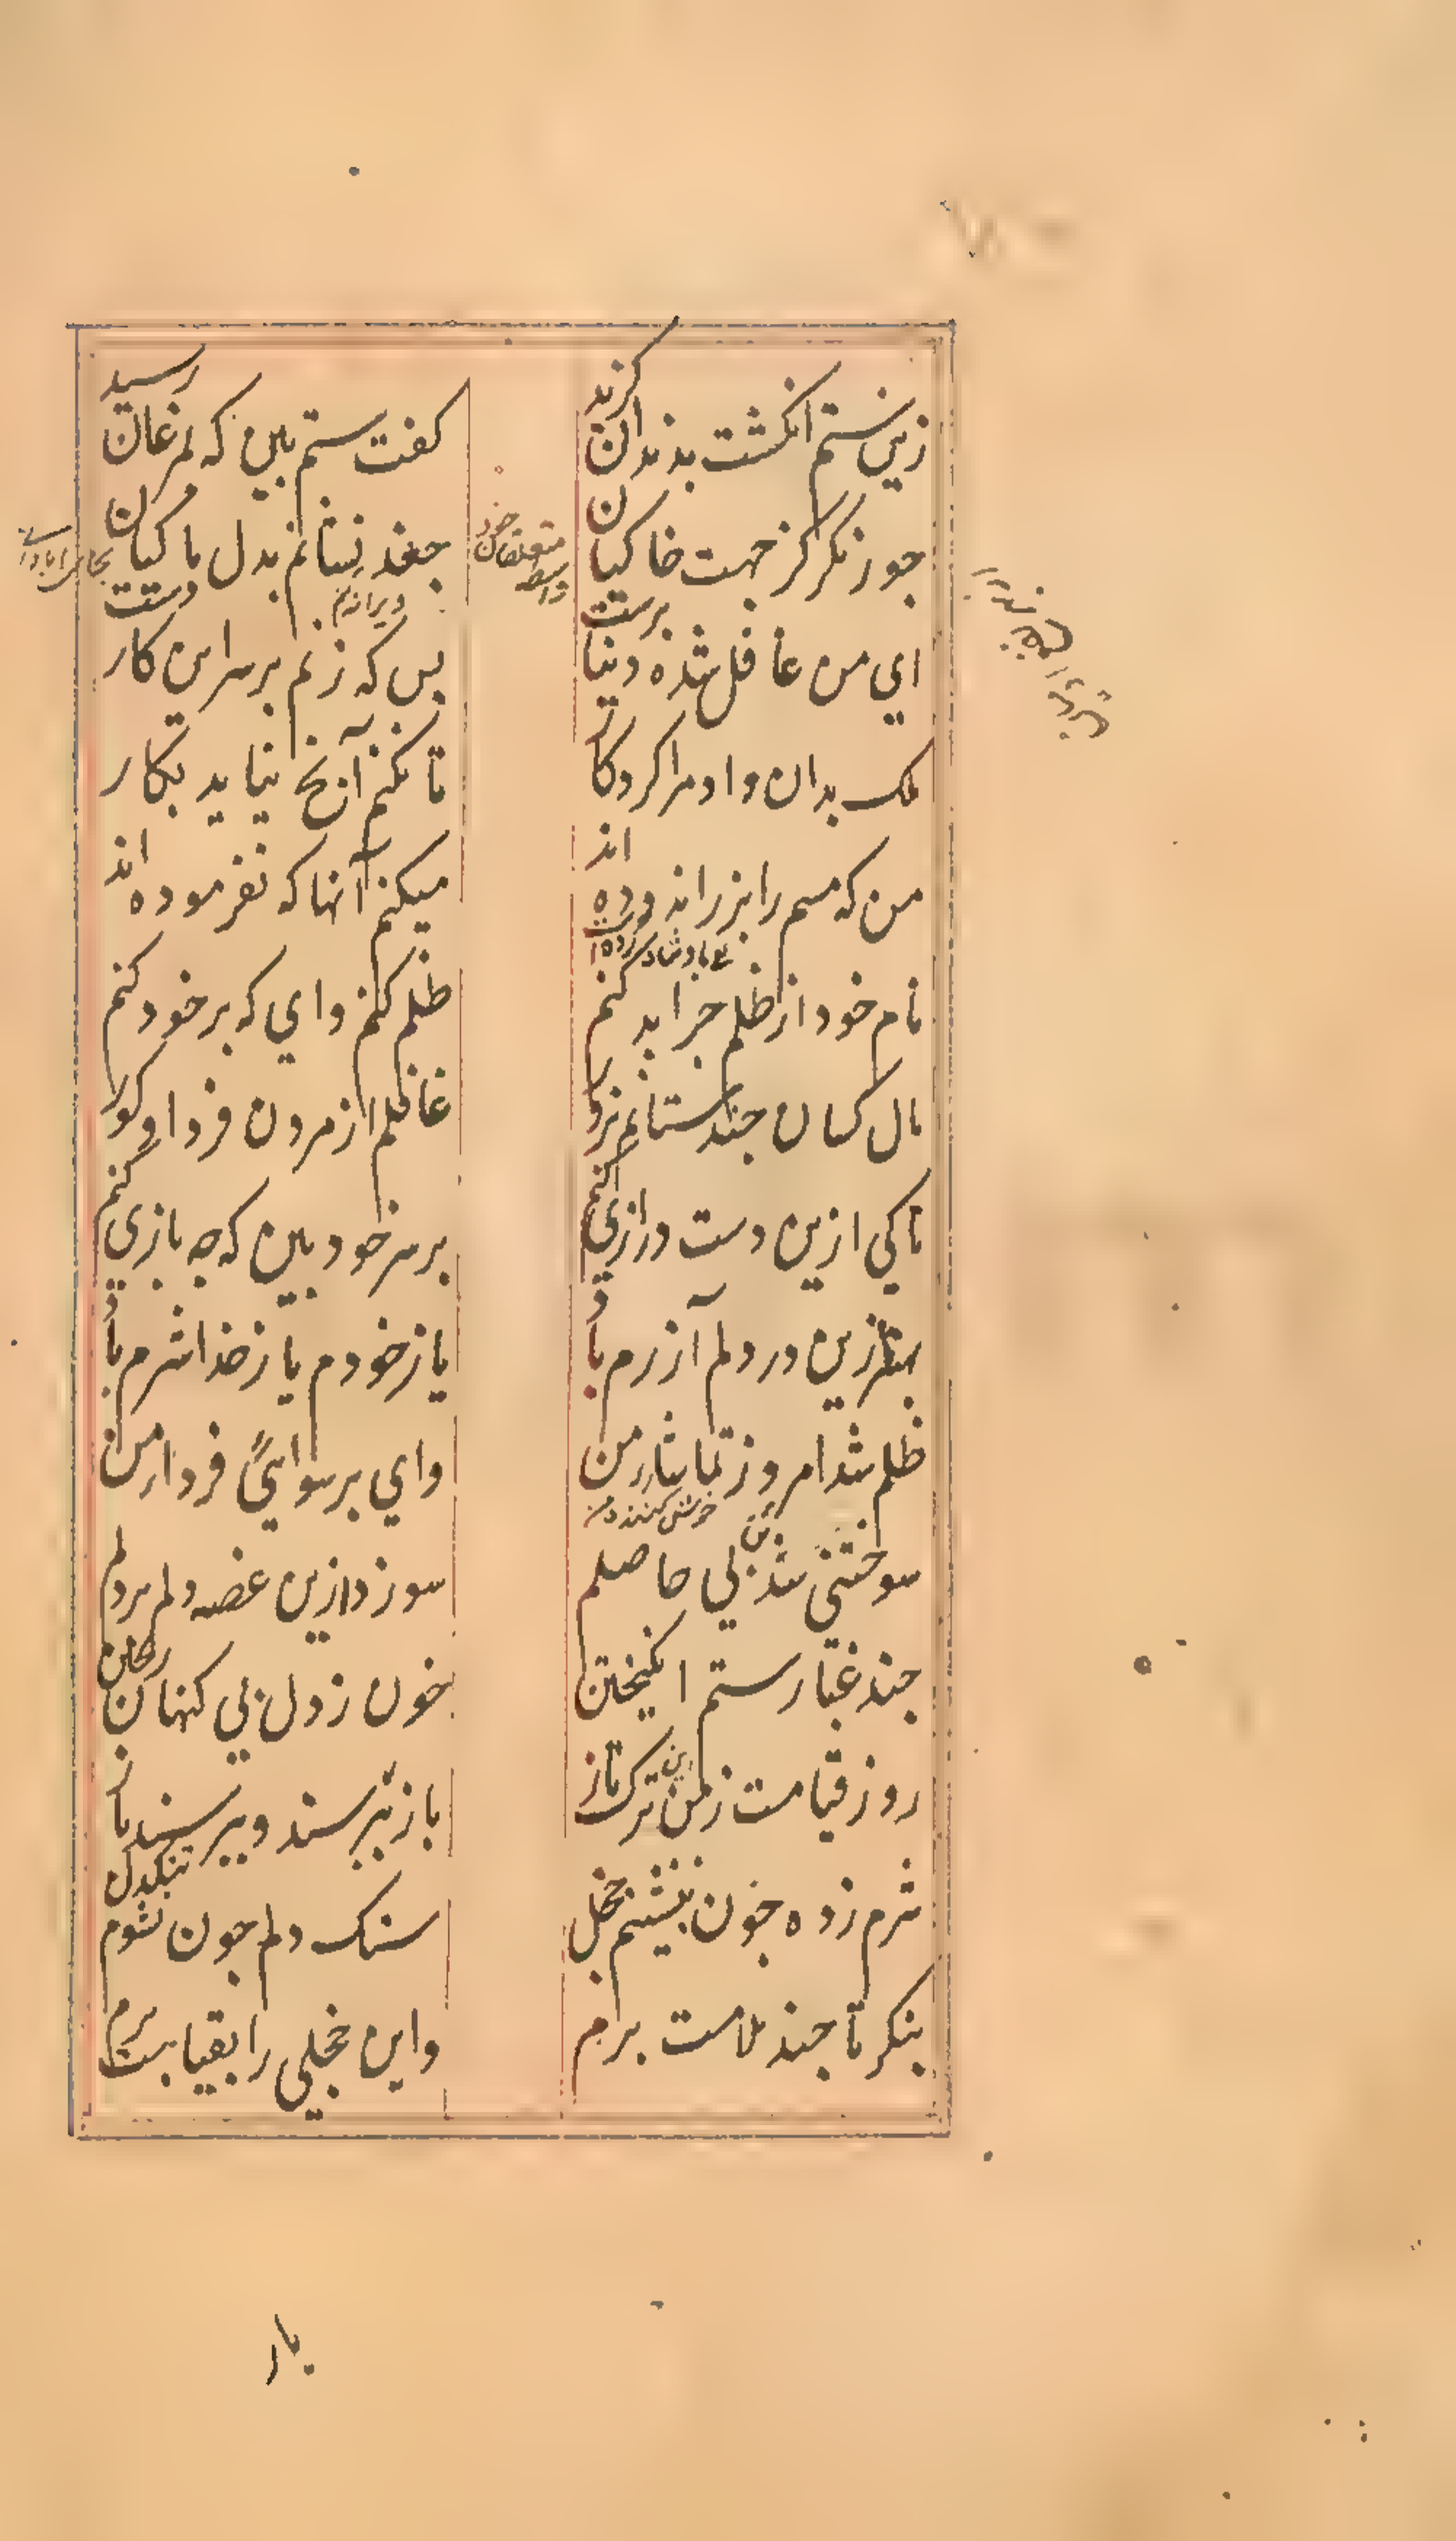 زین ستم انکشت بدندان کزید
کفت ستم بین که بمرغان رسید
جور نکر کز جهت خاکیان
جغد نشانم بدل ماکیان
ای من غافل شده دنیا پرست
بس که زنم بر سر این کار دست
ملک بدان داد مرا کردکار
تا نکنم آنچ نیاید بکار
من که مسم را بزر اندوده اند
میکنم آنها که نفرموده اند
نام خود از ظلم چرا بد کنم
ظلم کنم وای که بر خود کنم
مال کسان چند ستانم بزور
غافلم از مردن فردا و کور
تا کی ازین دست درازی کنم
بر سر خود بین که چه بازی کنم
بهتر ازین در دلم آزرم باد
یا ز خودم یا ز خذا شرم باد
ظلم شد امروز تماشای من
وای برسوایی فردای من
سوختنی شد تن بی حاصلم
سوزد ازین غصه دلم بر دلم
چند غبار ستم انکیختن
خون ز دل بی کنهان ریختن
روز قیامت ز من این ترک تاز
باز بپرسند و بپرسند باز
شرم زده چون ننشینم خجل
سنک دلم چون نشوم تنکدل
بنکر تا چند ملامت برم
واین خجلی را بقیامت برم
بار